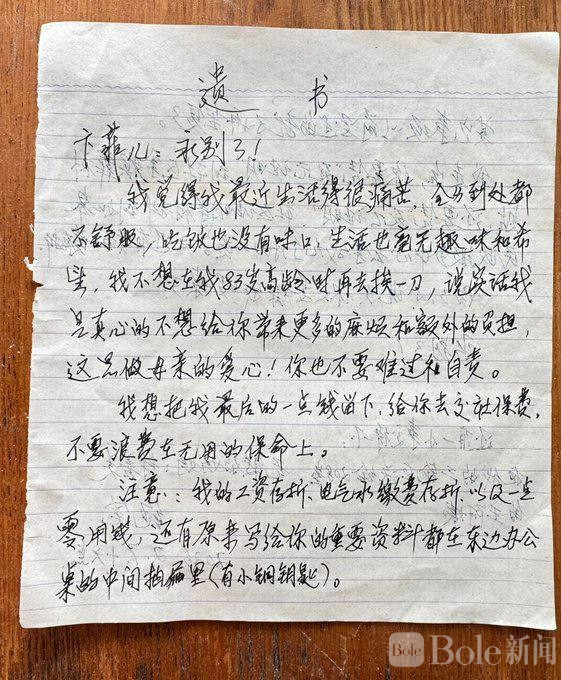 遗书
卞菲儿：永别了！
我觉得我最近生活得很痛苦，全身到处都
不舒服，吃饭也没有味口，生活也毫无趣味和希
望，我不想在我83岁高龄时再去挨一刀，说实话我
是真心的不想给你带来更多的麻烦和额外的负担，
这是做母亲的爱心！你也不要难过和自责。
我想把我最后的一点钱留下，给你去交社保费，
不要浪费在无用的保命上。
注意：我的工资存折、电气水缴费存折以及一点
零用钱，还有原来写给你的重要资料都在东边办公
桌的中间抽屉里（有小铜钥匙）。
Bole
Bole新闻